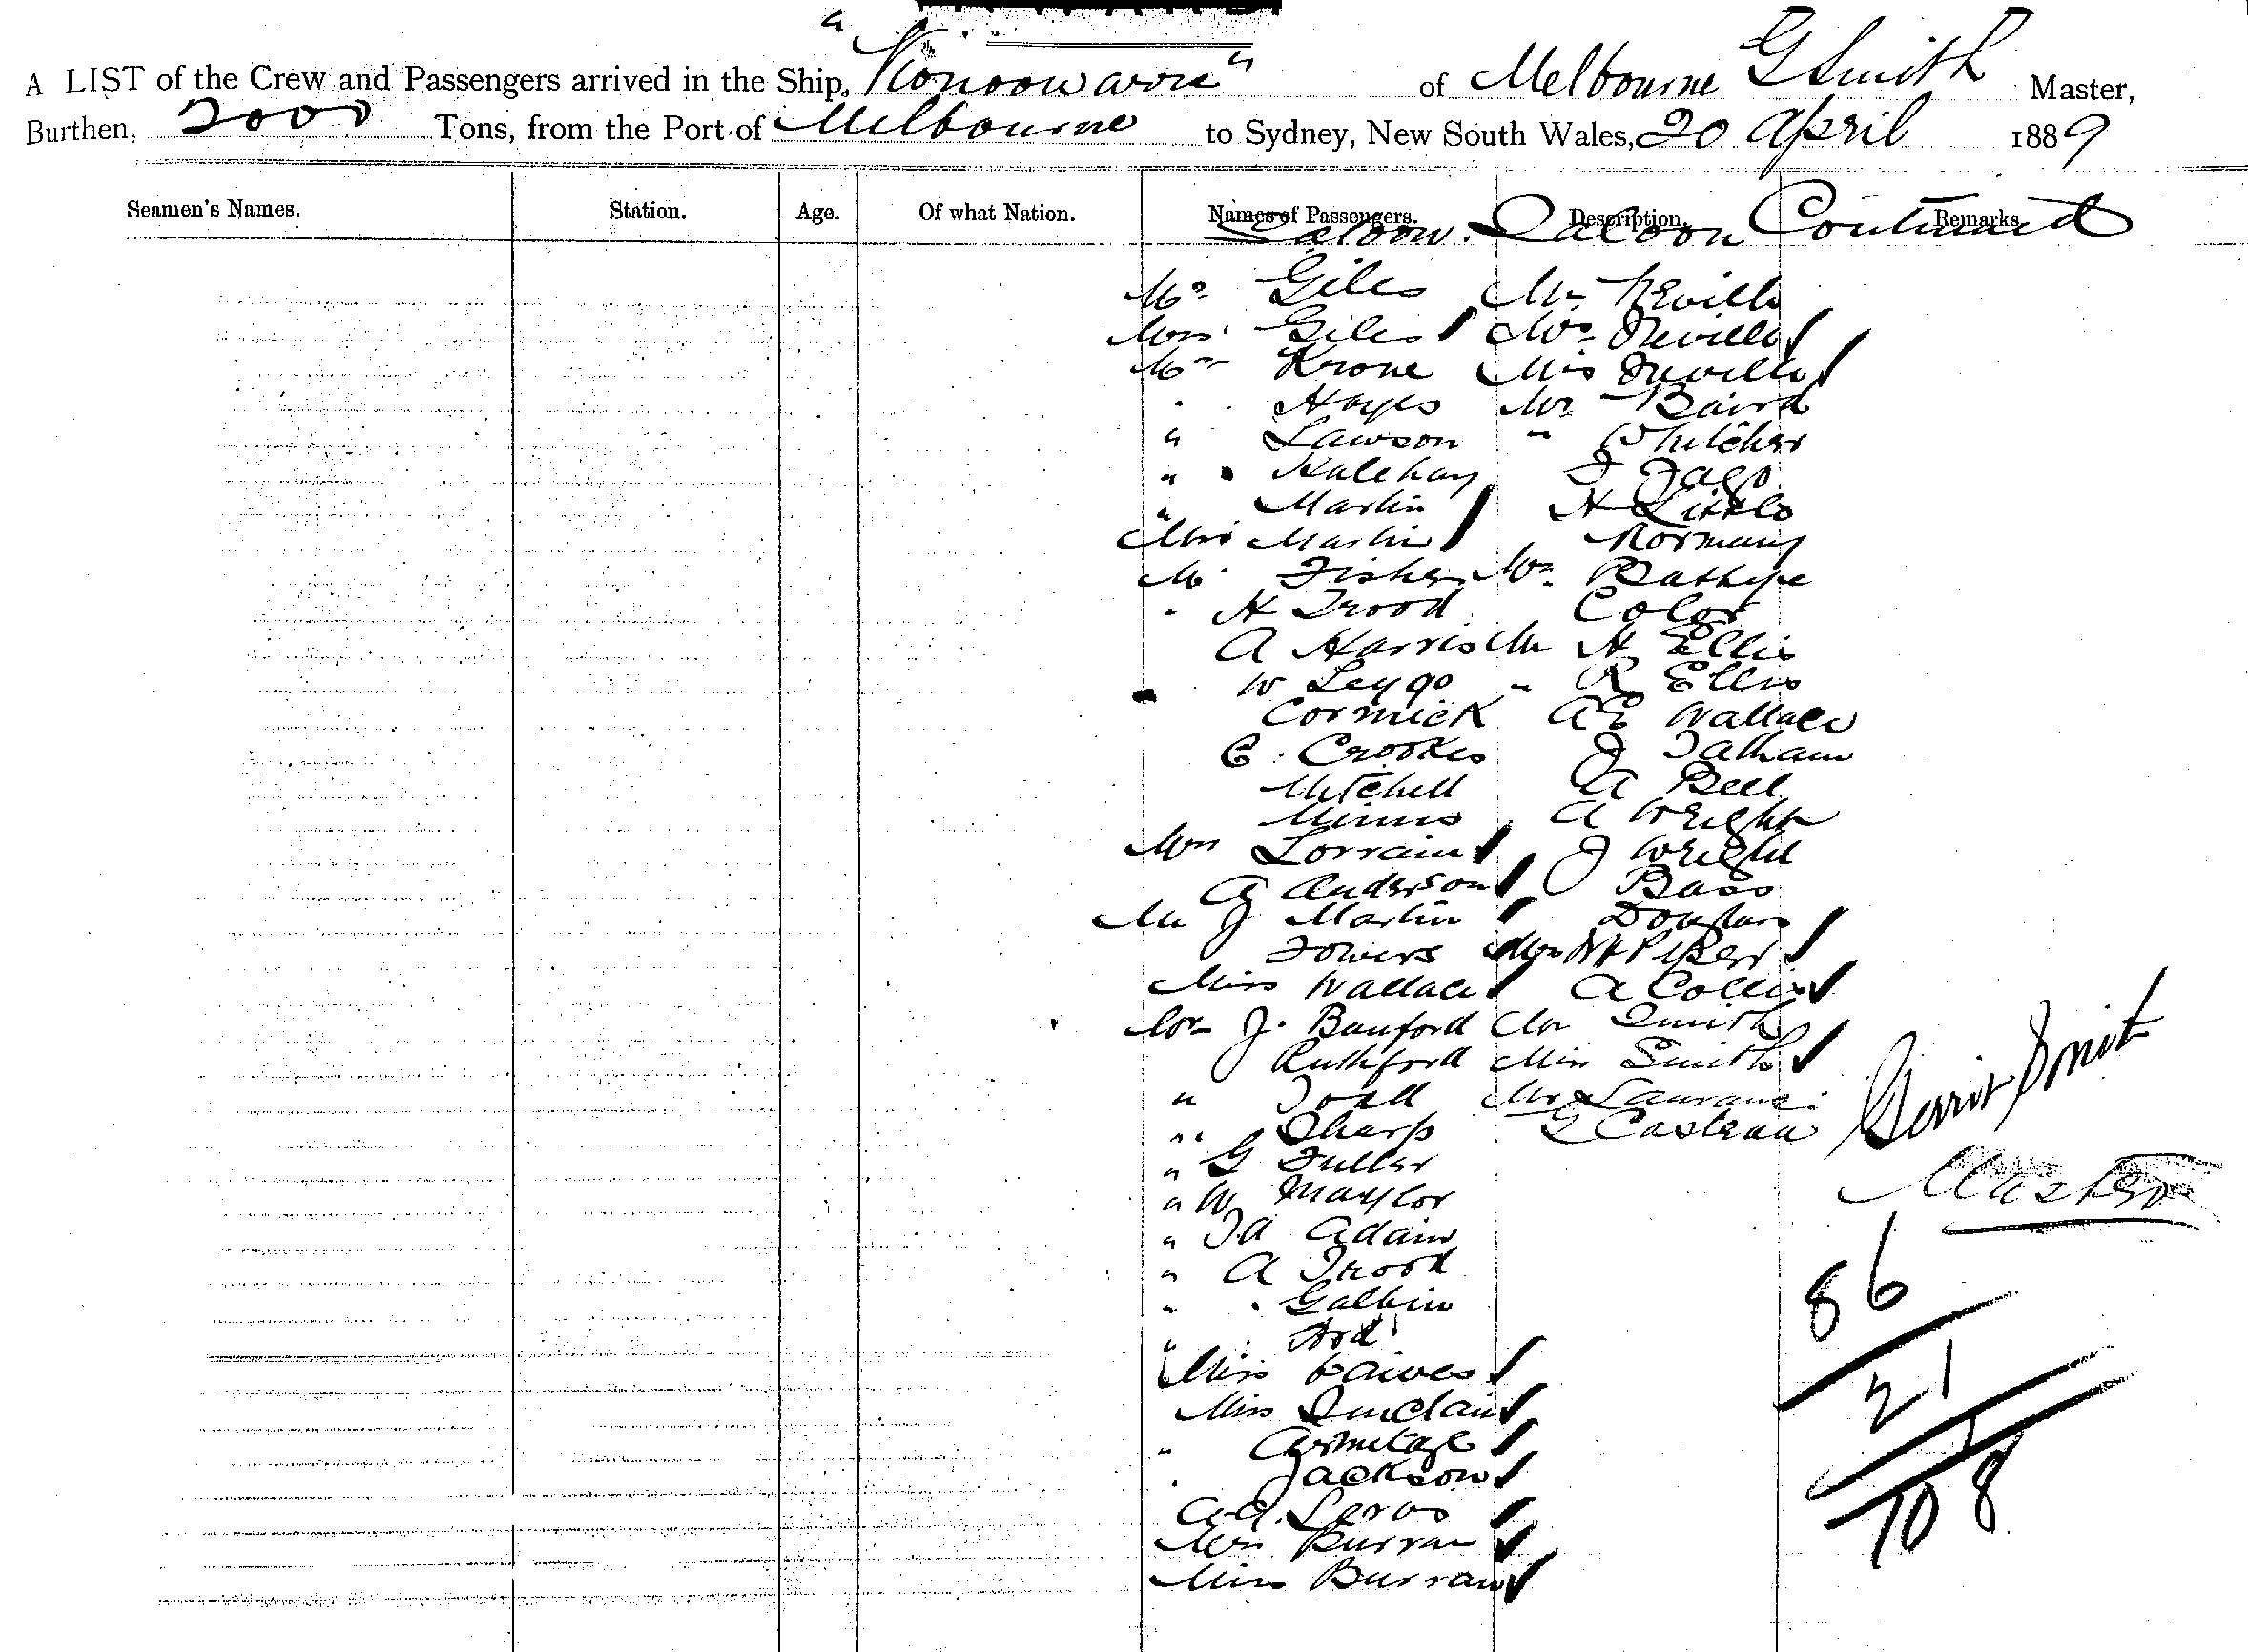 A LIST of the Crew and Passengers arrived in the Ship, "Konoowarra" of Melbourne G Smith Master,
Burthen, 2000 Tons, from the Port of Melbourne to Sydney, New South Wales, 20 April 1889
Seamen's Names. Station. Age. Of what Nation. Names of Passengers. Description. Remarks
Saloon. Saloon Continued
Mr Giles Mr Neville
Mrs Giles Mrs Neville
Mr Krone Miss Neville
Hayes Mr Baird
" Lawson " Whitcher
"
" Martin H Little
Mrs Martin Normany
Mr Fisher Mr
" H Trood Color
A Harris Mr H Ellis
W Leygo " R Ellis
Cormick AE Wallace
C. Crookes J Tatham
Mitchell A Bell
Minns A Wright
Mrs Lorraine J Wright
A Anderson Bass
Mr J Martin Douglas
Towers Mrs
Miss Wallace A Collins
Mr J. Banford Mr Smith
Ruthford Miss Smith
" Todd Mr Laurance
" Sharp G Casteau
" G Fuller
" W Maylor
" TA Adam
" A Trood
" Galbin
" Ard
Miss Daives
Miss Sinclair
" Armitage
" Jackson
Mrs Burran
Miss Burran
Gerrit Smith
Master
86
21
1
108